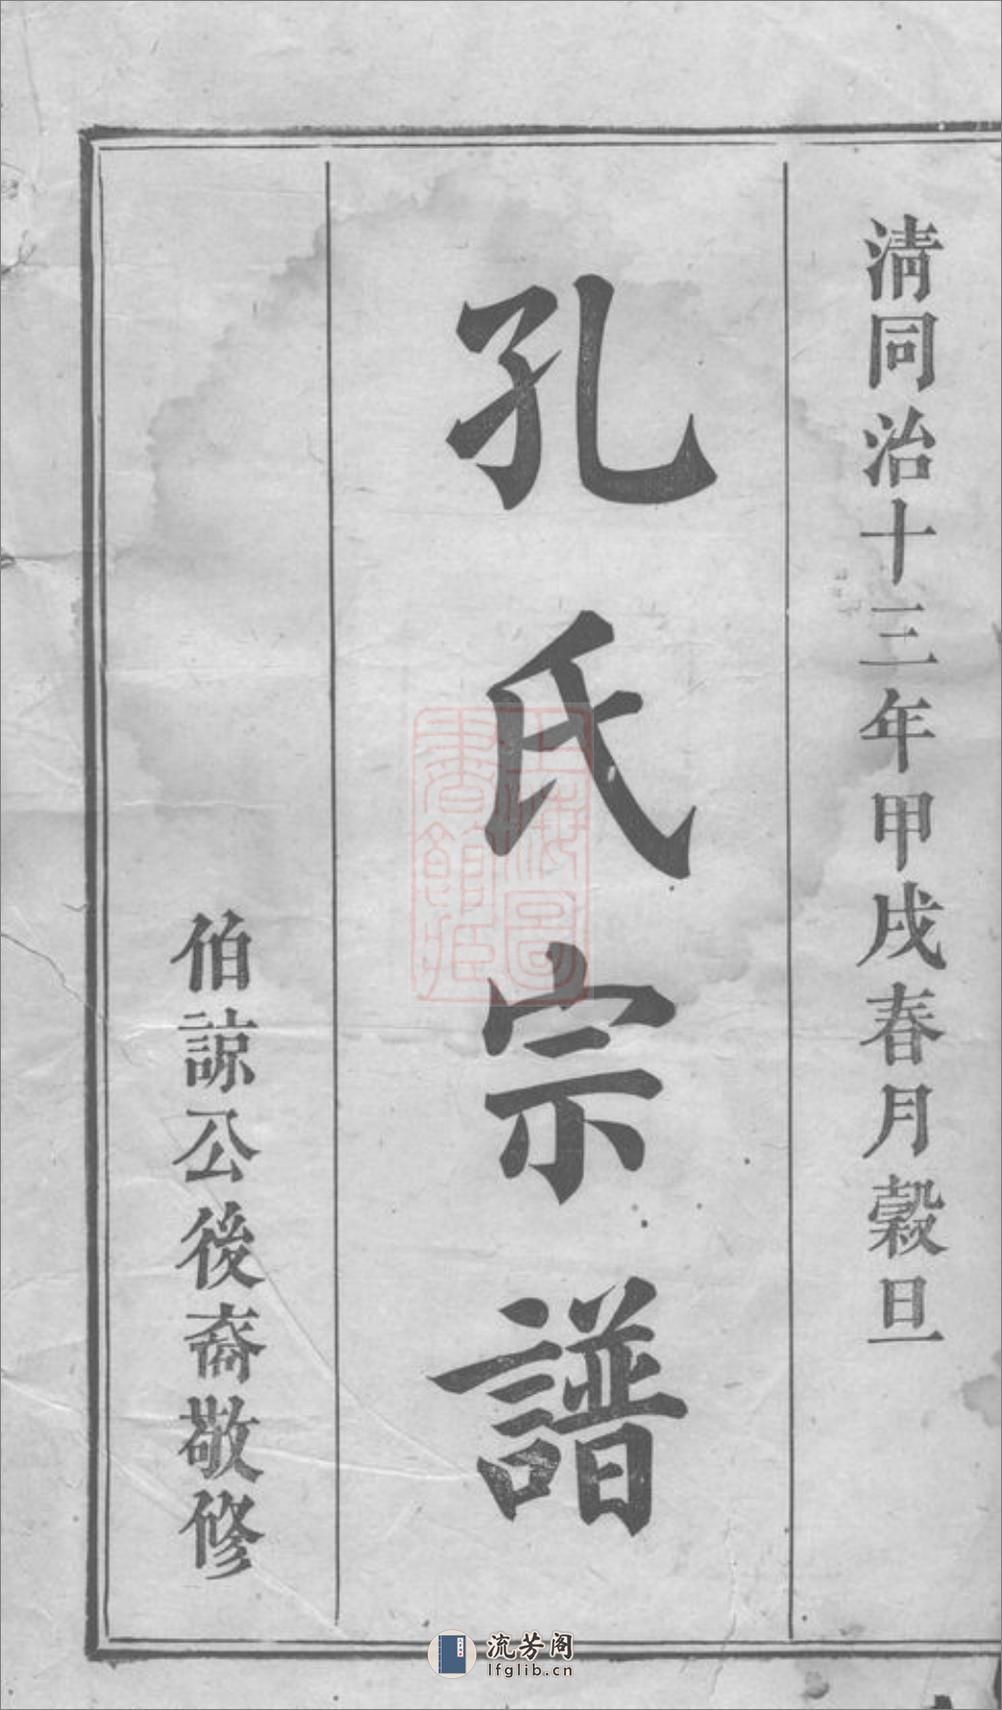 清同治十三年甲戌春月穀旦
孔氏宗譜
伯諒公後裔敬修
上海圖
書館藏
流芳阁
lfglib.cn